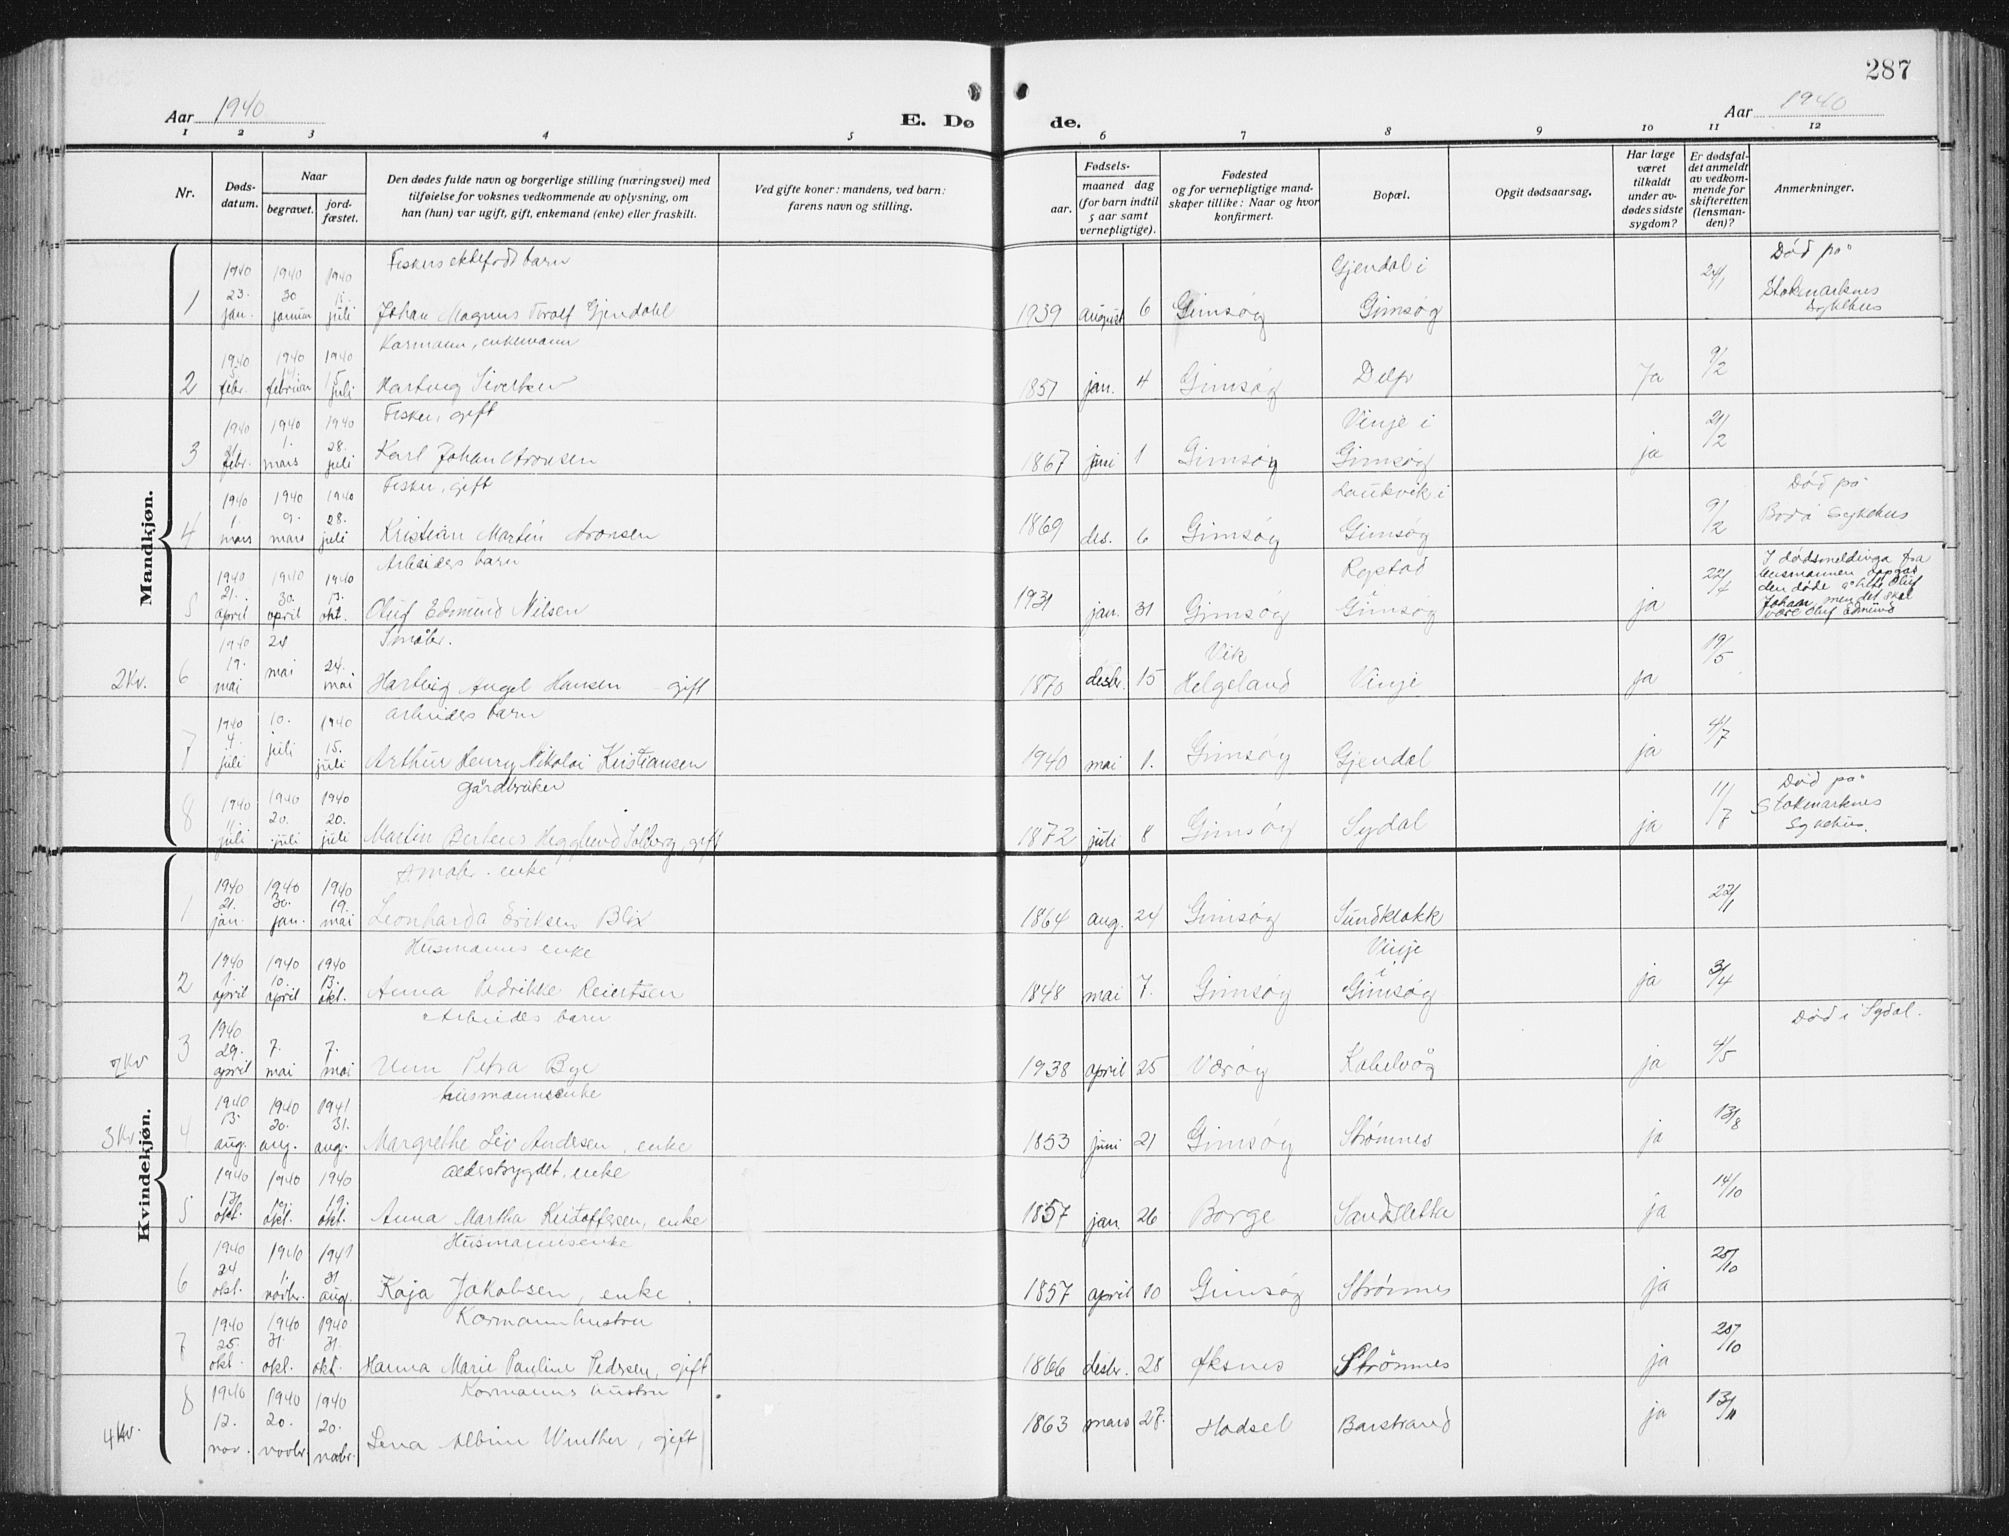 287
Aar 1940
E. Dø
de.
Aar 1940
1 2 3 4 5 6 7 8 9 10 11 12
Nr.
Døds-
datum.
Naar
begravet.
jord-
fæstet.
Den dødes fulde navn og borgerlige stilling (næringsvei) med
tilføielse for voksnes vedkommende av oplysning, om
han (hun) var ugift, gift, enkemand (enke) eller fraskilt.
Ved gifte koner: mandens, ved barn:
farens navn og stilling.
Fødsels-
aar.
maaned dag
(for barn indtil
5 aar samt
vernepligtige).
Fødested
og for vernepligtige mand-
skaper tillike: Naar og hvor
konfirmert.
Bopæl.
Opgit dødsaarsag.
Har læge
været
tilkaldt
under av-
dødes sidste
sygdom?
Er dødsfal-
det anmeldt
av vedkom-
mende for
skifteretten
(lensman-
den)?
Anmerkninger.
Mandkjøn.
Fiskers ektefødt barn Gjendal i Død på
1940 1940 1940 24/1
1 23. jan. 30 januar juli Johan Magnus Torolf Gjendahl 1939 august 6 Gimsøy Gimsøy Stokmarknes Sykehus
Kårmann, enkemann
1940 1940 1940 9/2
2 febr. februar juli Hartvig Sivertsen 1851 jan. 4 Gimsøy Delp Ja
Fisker, gift Vinje i
1940 1940 1940 21/2
3 febr. 1. mars 28. juli Karl Johan Aronsen 1867 juni 1 Gimsøy Gimsøy ja
Fisker, gift Laukvik i Død på
1940 1940 1940 9/2
4 1. mars 9. mars 28. juli Kristian Martin Aronsen 1869 des. 6 Gimsøy Gimsøy Bodø Sykehus
Arbeiders barn Rystad
1940 1940 1940 22/4
5 21. april 30. april 13. okt. Oluf Edmund Nilsen 1931 jan. 31 Gimsøy Gimsøy ja
I dødsmeldinga fra
lensmannen oppgås
den døde å hete Oluf
Johan, men det skal
være Oluf Edmund
Småbr. Vik
1940 19/5
2 Kv. 6 19. mai 24 mai 24. mai Hartvig Angel Hansen - gift 1870 desbr. 15 Helgeland Vinje ja
Arbeiders barn
1940 1940 4/7
7 4. juli 10. juli 15. juli Arthur Henry Nikolai Kristiansen 1940 mai 1. Gimsøy Gjendal ja
gårdbruker Død på
1940 1940 1940 11/7
8 11. juli 20. juli 20. juli Martin Berteus Hegglund Solberg, gift 1872 juli 8 Gimsøy Sydal ja Stokmarknes Sykehus.
Kvindekjøn.
Småbr. enke
1940 1940 1940 22/1
1 21. jan. 30. jan. 19. mai Leonharda Eriksen Blix 1864 aug. 24 Gimsøy Sundklakk
Husmanns enke Vinje i
1940 1940 1940 3/4
2 1. april 10. april 13. okt. Anna Pedrikke Reiertsen 1848 mai 7. Gimsøy Gimsøy ja
Arbeiders barn Død i Sydal.
1940 4/5
Kv 3 29. april 7. mai 7. mai Unn Petra Bye 1938 april 25 Værøy Kabelvåg ja
husmannsenke
1940 1940 1941 13/8
3 Kv. 4 13. aug. 20. aug. 31. aug. Margrethe Andersen, enke 1853 juni 21 Gimsøy Strømnes ja
alderstrygdet, enke
1940 1940 1940 14/10
5 okt. 19. okt. 19. okt. Anna Martha Kristoffersen, enke 1857 jan. 26 Borge Sandsletta ja
Husmannsenke
1940 1940 1941 25/10
6 24 okt. 1. novbr. 31 aug. Kaja Jakobsen, enke 1857 april 10 Gimsøy Strømnes ja
Kårmann hustru
1940 1940 1940 25/10
7 25. okt. 31. okt. 31. okt. Hanna Marie Pauline Pedersen, gift 1866 desbr. 28 Øksnes Strømnes ja
Kårmanns hustru
1940 1940 1940 13/11
4 Kv. 8 12. nov. 20. novbr. 20. novbr. Lena Albine Winther, gift 1863 mars 27. Hadsel Barstrand ja